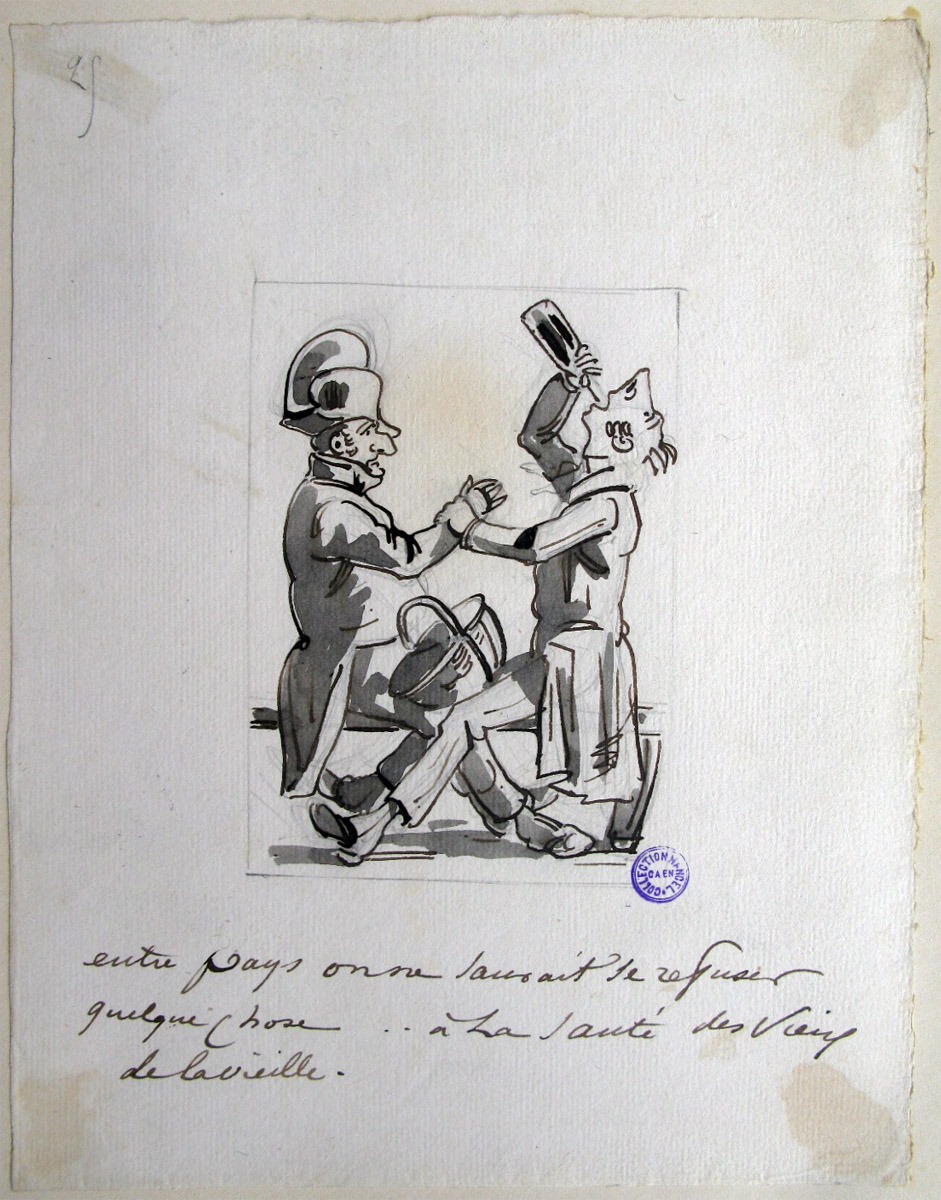 25
COLLECTION MANCEL
CAEN
entre pays on ne sauroit se refuser
quelque chose .. à la Santé des Vieux
de la vieille.